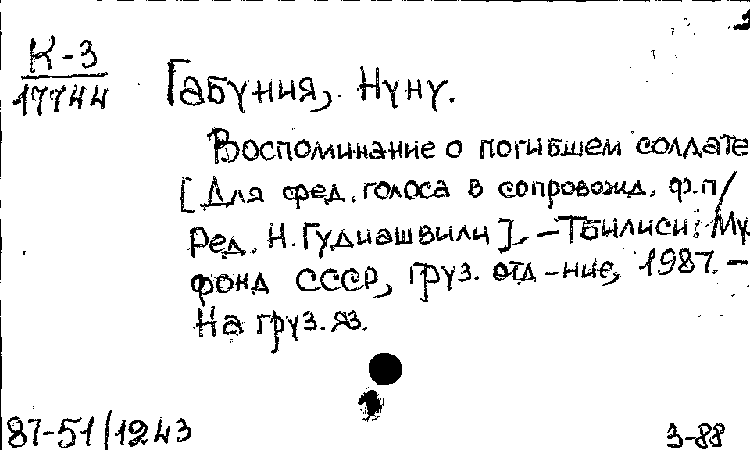 К-3
17744
Габуния, Нуну.
Воспоминание о погибшем солдате
[Для сред. голоса в сопровожд. ф.п/
Ред. Н. Гудиашвили]. – Тбилиси: Му
фонд СССР, груз. отд-ние, 1987. –
На груз. яз.
87-51/1243
3-88